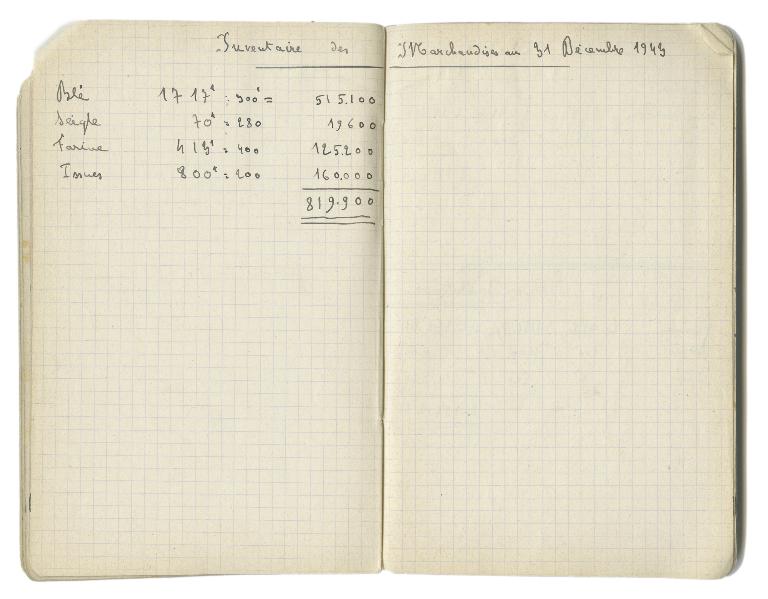 Inventaire des Marchandises au 31 Décembre 1943
Blé 1717ˣ : 300ˣ = 515.100
Seigle 70ˣ = 280 19600
Farine 413ˣ = 400 125.200
Issues 800ˣ = 200 160.000
819.900